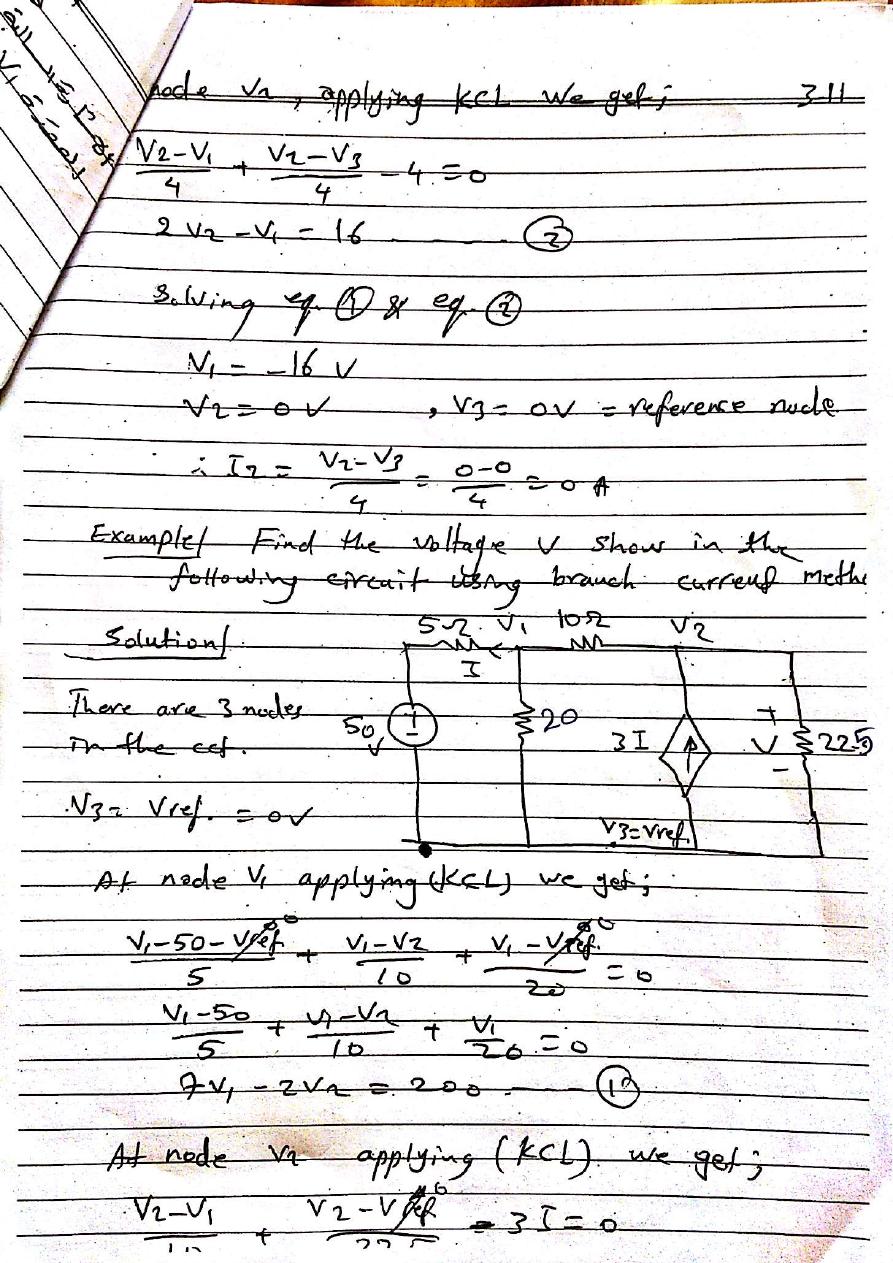 node V2, applying KCL we get; 3-11
V2-V1/4 + V2-V3/4 - 4 = 0
2V2 - V1 = 16 ------ ②
Solving eq. ① & eq. ②
V1 = -16 V
V2 = 0V , V3 = 0V = reference node
∴ I2 = V2-V3/4 = 0-0/4 = 0 A
Example/ Find the voltage V show in the
following circuit using branch current meth
Solution/
5Ω V1 10Ω V2
I
There are 3 nodes
in the cct.
50V
20
3I
+ V -
225
V3 = Vref. = 0V
V3=Vref.
At node V1 applying (KCL) we get;
V1-50-Vref.0/5 + V1-V2/10 + V1-Vref.0/20 = 0
V1-50/5 + V1-V2/10 + V1/20 = 0
7V1 - 2V2 = 200 ------ ①
At node V2 applying (KCL) we get;
V2-V1/10 + V2-Vref0/225 - 3I = 0